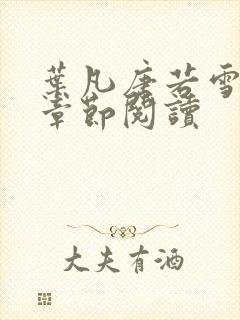 葉凡唐若雪
章節閱讀
大夫有酒